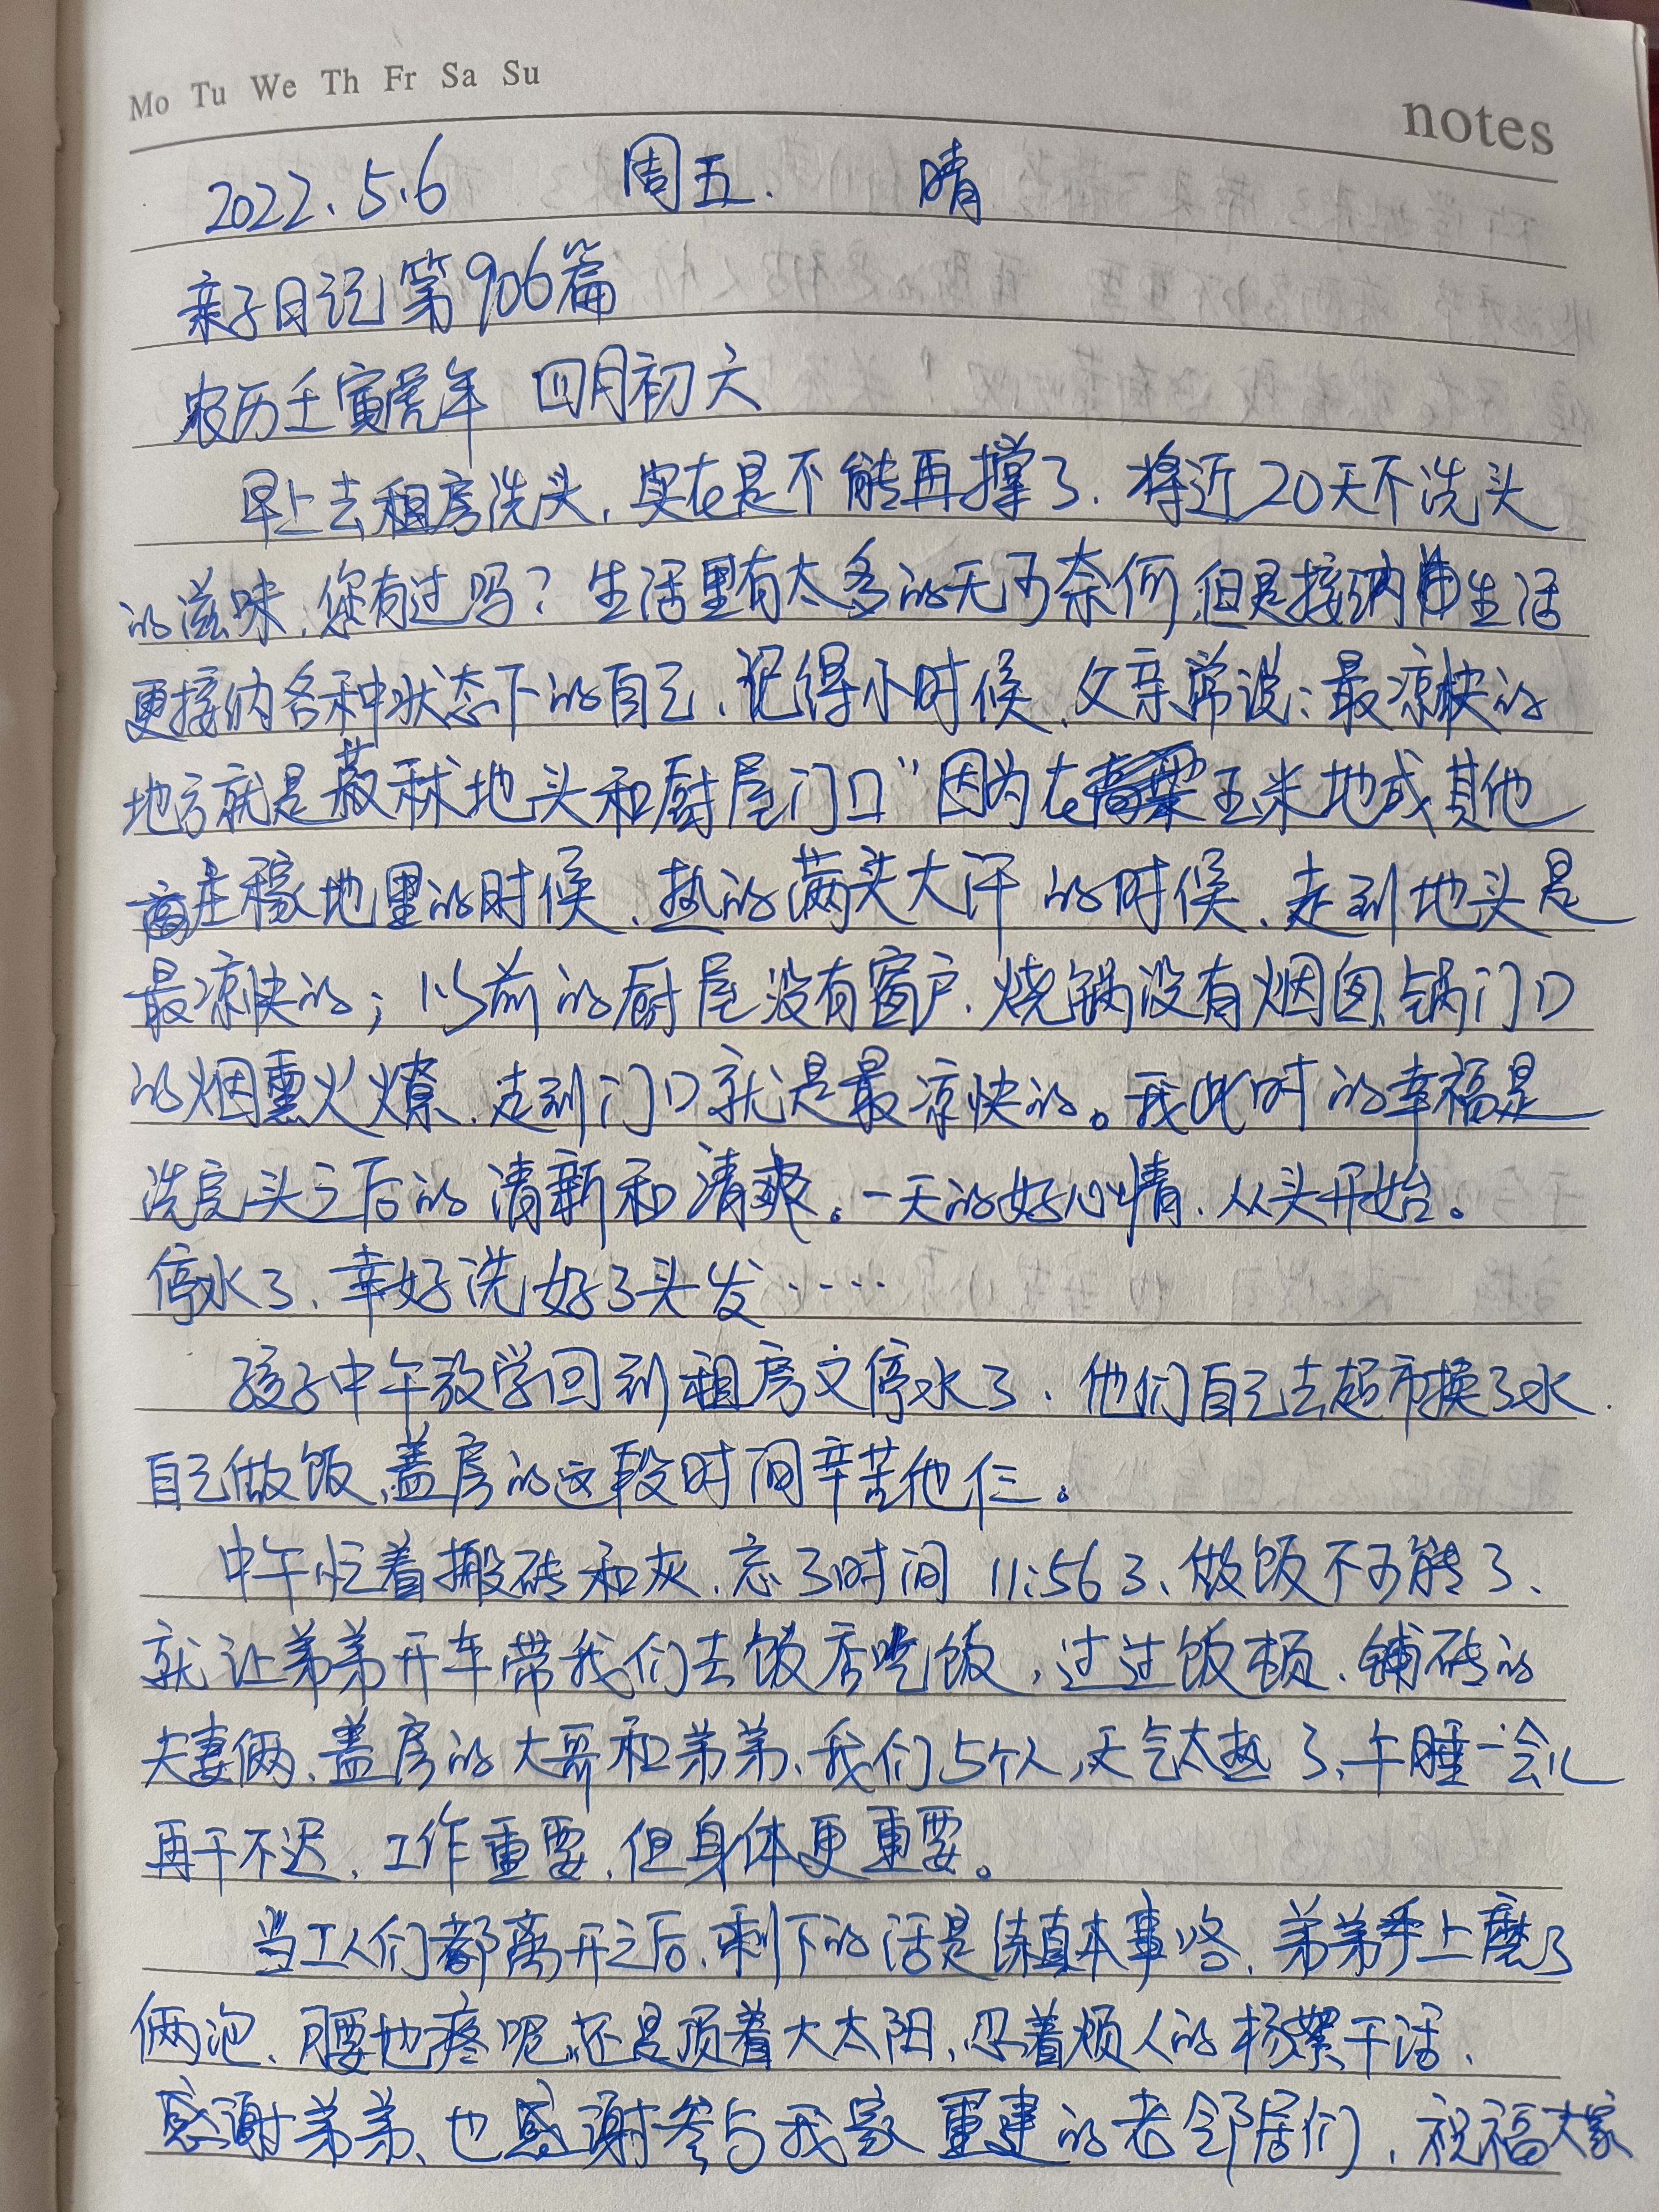 Mo Tu We Th Fr Sa Su
notes
2022.5.6 周五. 晴
亲子日记第906篇
农历壬寅虎年 四月初六
早上去租房洗头,实在是不能再撑了.将近20天不洗头
的滋味,您有过吗?生活里有太多的无可奈何,但是接纳生活
更接纳各种状态下的自己.记得小时候,父亲常说:最凉快的
地方就是秫地头和厨屋门口"因为在玉米地或其他
庄稼地里的时候,热的满头大汗的时候,走到地头是
最凉快的;以前的厨屋没有窗户.烧锅没有烟囱,锅门口
的烟熏火燎,走到门口就是最凉快的。我此时的幸福是
洗完头之后的清新和清爽。一天的好心情,从头开始。
停水了,幸好洗好了头发……
孩子中午放学回到租房又停水了.他们自己去超市换了水.
自己做饭,盖房的这段时间辛苦他仨。
中午忙着搬砖和灰,忘了时间 11:56了,做饭不可能了,
就让弟弟开车带我们去饭店吃饭,过过饭顿,铺砖的
夫妻俩,盖房的大哥和弟弟,我们5个人,天气太热了,午睡一会儿
再干不迟,工作重要,但身体更重要。
当工人们都离开之后,剩下的活是练真本事咯,弟弟手上磨了
俩泡,腰也疼呢,还是顶着大太阳,忍着烦人的杨絮干活,
感谢弟弟,也感谢参与我家重建的老邻居们,祝福大家